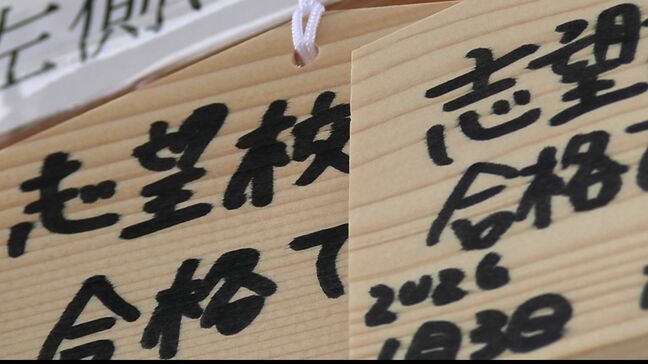 左側
志望校
合格
志望
合格
2026
1月3日